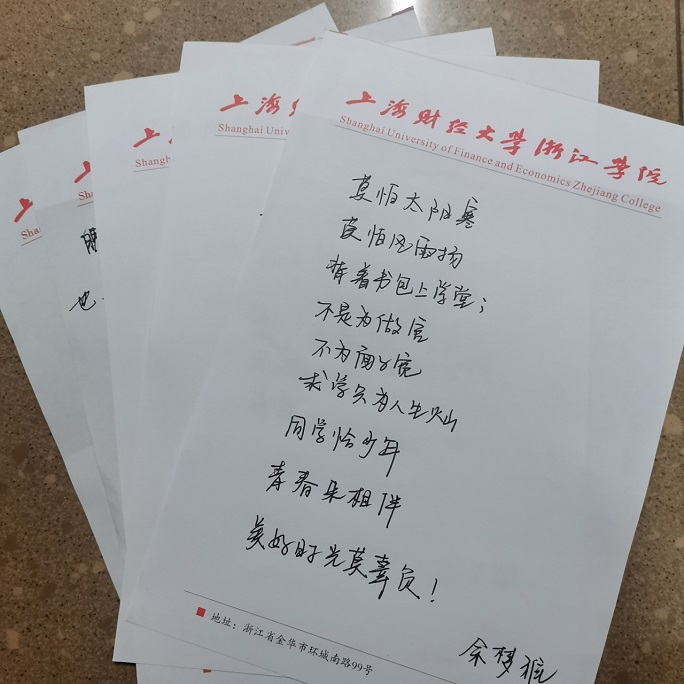 上海财经大学浙江学院
Shanghai University of Finance and Economics Zhejiang College
莫怕太阳寒
莫怕风雨扬
背着书包上学堂;
不是为做官
不为面子宽
求学只为人生灿
同学恰少年
青春朵相伴
美好时光莫辜负!
余梦
地址:浙江省金华市环城南路99号
上海财
Shanghai Univ
上
Shanghai
上
Shang
上
Sha
也